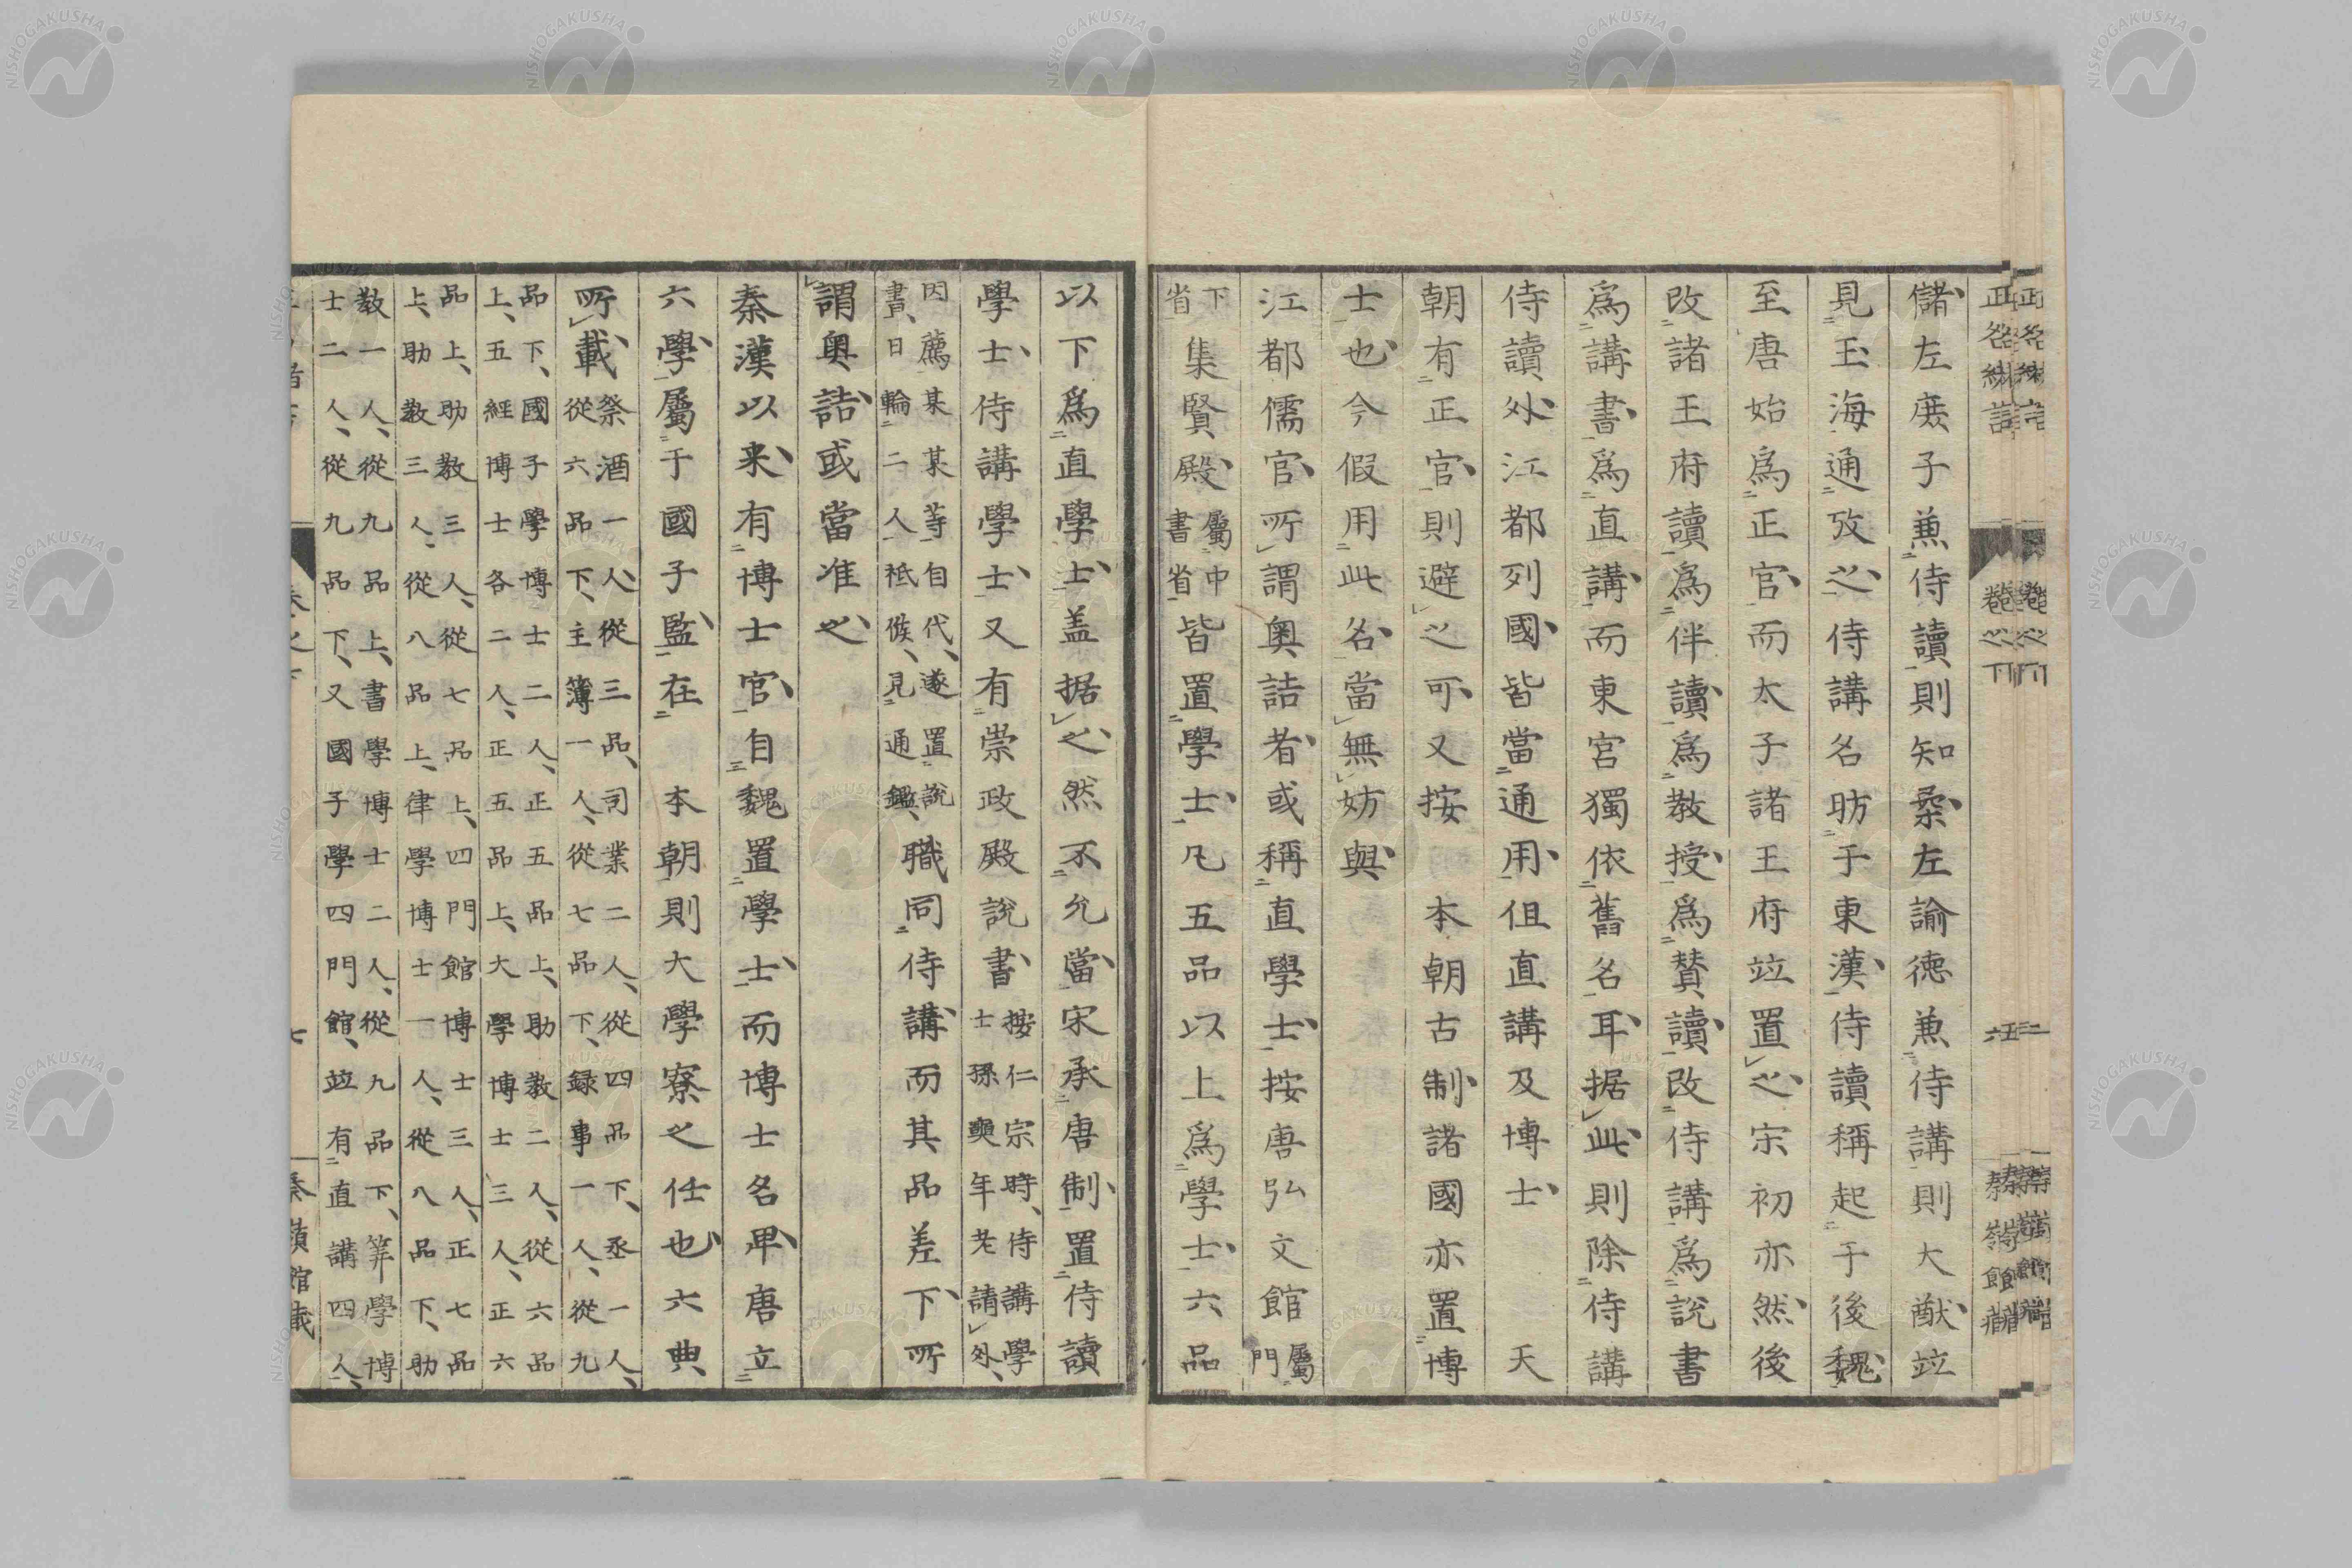 儲、左庶子兼侍讀則知桑、左諭德兼侍講則大猷、竝
見玉海通攷之、侍講名昉于東漢、侍讀稱起于後魏、
至唐始爲正官、而太子諸王府竝置之、宋初亦然、後
改諸王府讀爲伴讀、爲教授、爲贊讀、改侍講爲說書
爲講書、爲直講、而東宮獨依舊名耳、据此、則除侍講
侍讀外、江都列國、皆當通用、但直講及博士、天
朝有正官、則避之可、又按本朝古制、諸國亦置博
士也、今假用此名、當無妨與、
江都儒官、所謂奧詰者、或稱直學士、按唐弘文館屬門
下省集賢殿、屬中書省皆置學士、凡五品以上爲學士、六品
以下爲直學士、盖据之、然不允當、宋承唐制、置侍讀
學士、侍講學士、又有崇政殿說書、按仁宗時、侍講學士孫奭年老請外、
因薦某某等自代、遂置說書、日輪二人祗候、見通鑑、職同侍講、而其品差下、所
謂奧詰、或當准之、
秦漢以來、有博士官、自魏置學士、而博士名卑、唐立
六學、屬于國子監、在本朝則大學寮之任也、六典
所載、祭酒一人、從三品、司業二人、從四品下、丞一人、從六品下、主簿一人、從七品下、録事一人、從九
品下、國子學博士二人、正五品上、助教二人、從六品上、五經博士各二人、正五品上、大學博士三人、正六
品上、助教三人、從七品上、四門館博士三人、正七品上、助教三人、從八品上、律學博士一人、從八品下、助
教一人、從九品上、書學博士二人、從九品下、筭學博士二人、從九品下、又國子學四門館、竝有直講四人、
正名緒言
卷之下
六
奏嶺館藏
七